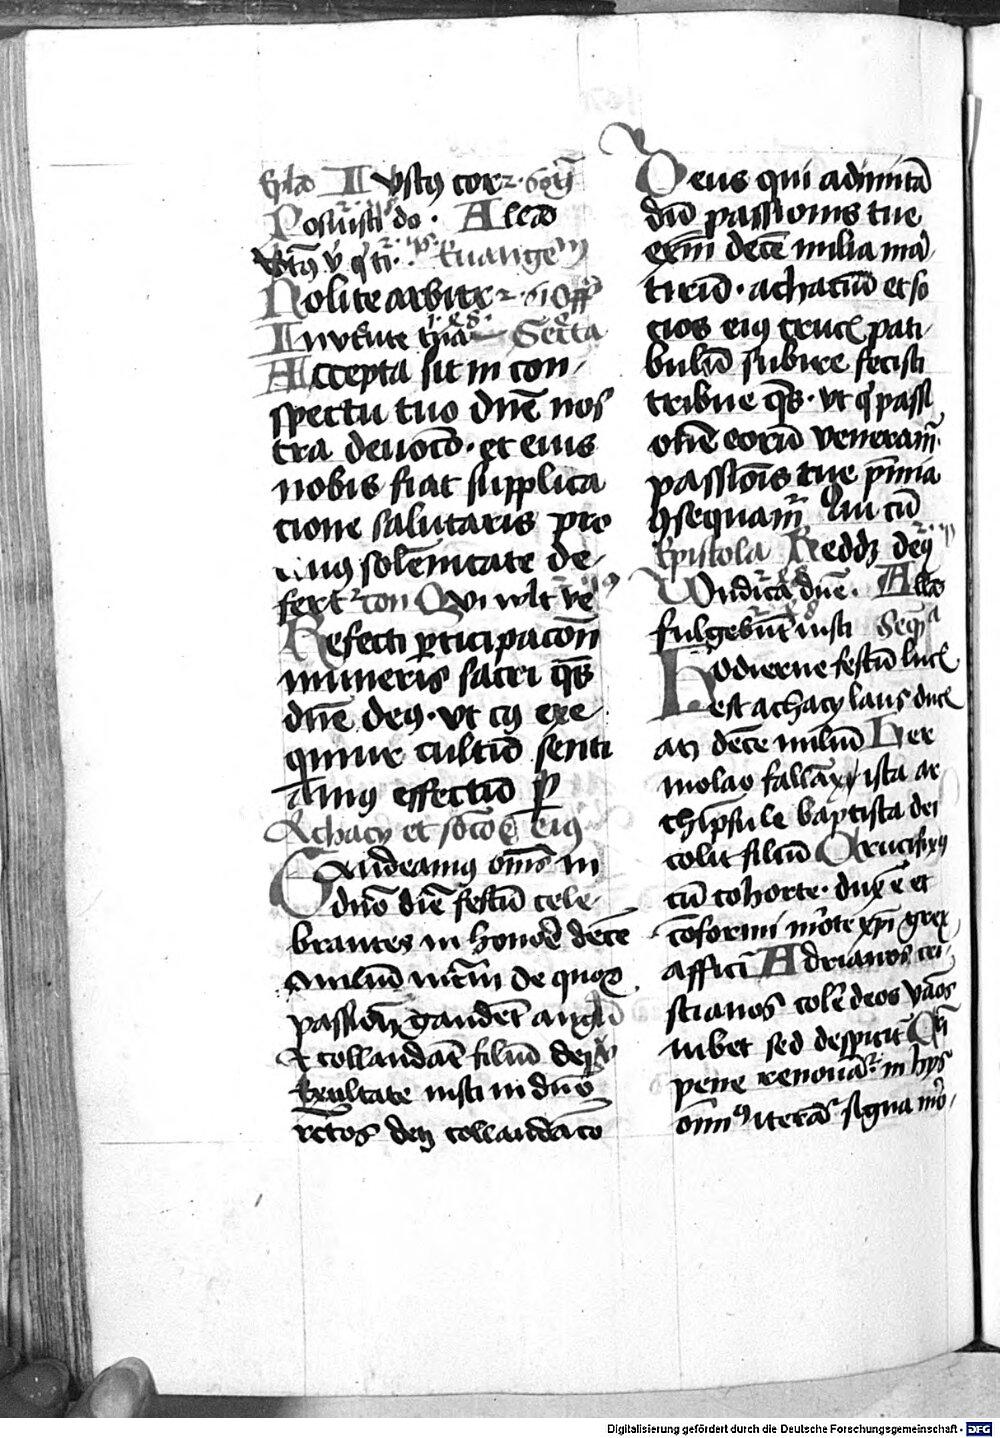 Epla Iustus cor
Posuisti do. Alla
Iustus
Nolite arbitr
Inveni Secreta
Accepta sit in con
spectu tuo dn̄e nos
tra devoc̄o. et eius
nobis fiat supplica
cione salutaris pro
cuius solēnitate de
fert Qui vult ve
Refecti ꝑticipac̄on
muneris sacri qs̄
dn̄e deus. ut cuius exe
quimur cultū senti
amus effectū ꝑ
Achacy et soc̄o eius
Gaudeamus om̄s in
dn̄o diē festū cele
brantes in honorē decē
miliū de quoꝝ
passiōn gaudēt
et collaudāt filiū dei
Exultate iusti in dn̄o
rectos dec̄ collaudac̄o
Deus qui ad imitā
diū passionis tue
decē milia mar
tirū. achaciū et so
cios eius crucis pati
bulū subire fecisti
tribue qs̄. ut qui passi
onē eorū veneram̄
passiōis tue p̄mia
ꝯsequam̄ Qui cū
Epistola Reddet deus
Vindica dn̄e. Alla
fulgebūt iusti Seqͣ
Hodierne festū lucis
est achacy laus ducis
atꝫ decē miliū Her
molao
thip̄sule baptista dei
colit filiū Crucifixus
cū cohorte. dux ē et
cōformi morte xp̄i grex
affici Adrianos cri
stianos colē deos vāos
iubet sed despicit
pene renova in hys
om̄ibus iterā signa mo
Digitalisierung gefördert durch die Deutsche Forschungsgemeinschaft - DFG